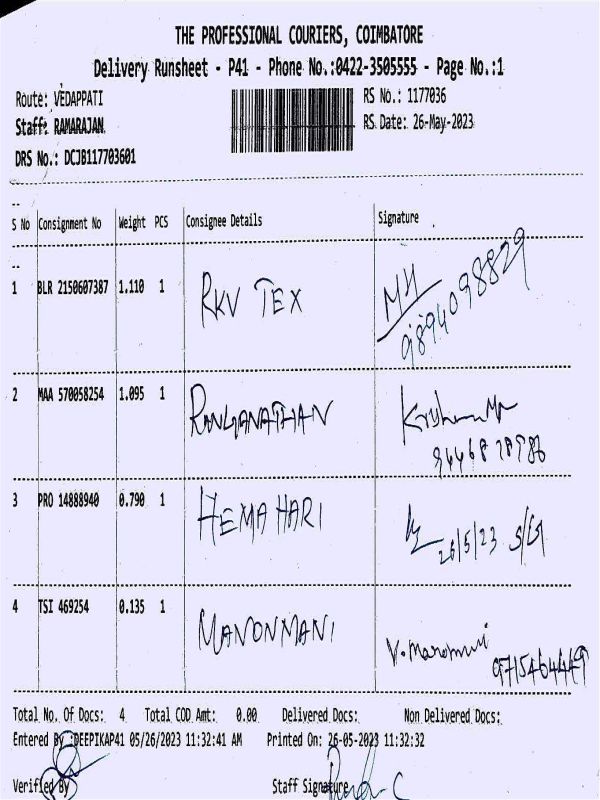 THE PROFESSIONAL COURIERS, COIMBATORE
Delivery Runsheet - P41 - Phone No.:0422-3505555 - Page No.:1
Route: VEDAPPATI RS No.: 1177036
Staff: RAMARAJAN RS Date: 26-May-2023
DRS No.: DCJB117703601
S No Consignment No Weight PCS Consignee Details Signature
1 BLR 2150607387 1.110 1 RKV TEX
9894098829
2 MAA 570058254 1.095 1 RANGANATHAN
3 PRO 14888940 0.790 1 HEMA HARI 26/5/23
4 TSI 469254 0.135 1 MANONMANI
Total No. Of Docs: 4 Total COD Amt: 0.00 Delivered Docs: Non Delivered Docs:
Entered By :DEEPIKAP41 05/26/2023 11:32:41 AM Printed On: 26-05-2023 11:32:32
Verified By Staff Signature